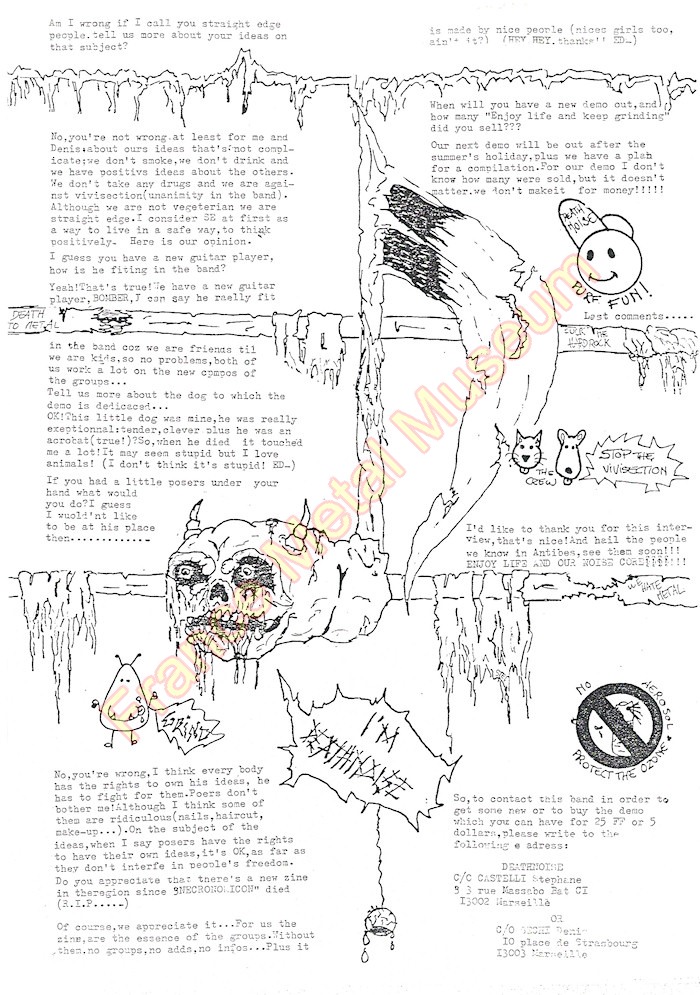 Am I wrong if I call you straight edge
people.tell us more about your ideas on
that subject?
No,you're not wrong.at least for me and
Denis:about ours ideas that's not compl-
icate;we don't smoke,we don't drink and
we have positivs ideas about the others.
We don't take any drugs and we are agai-
nst vivisection(unanimity in the band).
Although we are not vegeterian we are
straight edge.I consider SE at first as
a way to live in a safe way,to think
positively. Here is our opinion.
I guess you have a new guitar player,
how is he fiting in the band?
Yeah!That's true!We have a new guitar
player,BOMBER,I can say he raelly fit
DEATH
TO METAL
in the band coz we are friends til
we are kids,so no problems,both of
us work a lot on the new compos of
the groups...
Tell us more about the dog to which the
demo is dedicaced...
OK!This little dog was mine,he was really
exeptionnal:tender,clever plus he was an
acrobat(true!)?So,when he died it touched
me a lot!It may seem stupid but I love
animals! (I don't think it's stupid! ED-)
If you had a little posers under your
hand what would
you do?I guess
I wuold'nt like
to be at his place
then.............
GRIND
I'M
No,you're wrong,I think every body
has the rights to own his ideas, he
has to fight for them.Poers don't
bother me!Although I think some of
them are ridiculous(nails,haircut,
make-up...).On the subject of the
ideas,when I say posers have the rights
to have their own ideas,it's OK,as far as
they don't interfe in people's freedom.
Do you appreciate that there's a new zine
in theregion since "NECRONOMICON" died
(R.I.P.....)
Of course,we appreciate it...For us the
zins,are the essence of the groups.Without
them,no groups,no adds,no infos...Plus it
is made by nice people (nices girls too,
ain't it?) (HEY HEY.thanks!! ED-)
When will you have a new demo out,and
how many "Enjoy life and keep grinding"
did you sell???
Our next demo will be out after the
summer's holiday,plus we have a plan
for a compilation.For our demo I don't
know how many were sold,but it doesn't
matter.we don't makeit for money!!!!!
DEATH
NOISE
PURE FUN!
Last comments.....
THE
HARDROCK
THE
CREW
STOP THE
VIVISECTION
I'd like to thank you for this inter-
view,that's nice!And hail the people
we know in Antibes,see them soon!!!
ENJOY LIFE AND OUR NOISE CORE!!!!!!!
WE HATE
METAL
NO AEROSOL
PROTECT THE OZONE
So,to contact this band in order to
get some new or to buy the demo
which you can have for 25 FF or 5
dollars,please write to the
following e adress:
DEATHNOISE
C/C CASTELLI Stephane
3 rue Massabo Bat CI
I3002 Marseille
OR
C/O Denis
I0 place de Strasbourg
I3003 Marseille
France Metal Museum